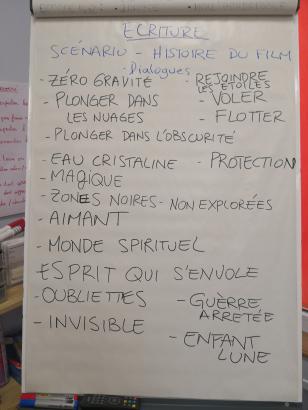 ECRITURE
SCÉNARIO - HISTOIRE DU FILM
- Dialogues
- ZÉRO GRAVITÉ
- REJOINDRE
LES ETOILES
- PLONGER DANS
LES NUAGES
- VOLER
- FLOTTER
- PLONGER DANS L'OBSCURITÉ
- EAU CRISTALINE
- PROTECTION
- MAGIQUE
- ZONES NOIRES - NON EXPLORÉES
- AIMANT
- MONDE SPIRITUEL
ESPRIT QUI S'ENVOLE
- OUBLIETTES
- GUÈRRE
ARRETÉE
- INVISIBLE
- ENFANT
LUNE